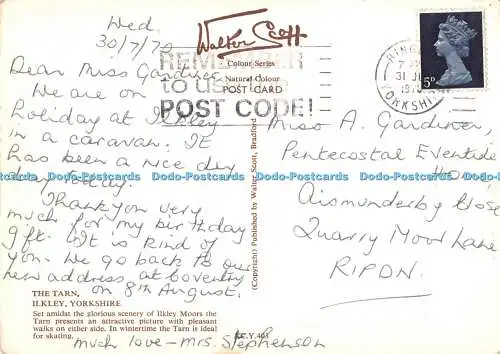 Wed.
30/7/70
Dear Miss Gardiner
We are on
Holiday at Ilkley
in a caravan. It
has been a nice dry
day today.
Thankyou very
much for my birthday
gift. It is kind of
you. We go back to our
new address, at Coventry
on 8th August.
much love - Mrs. Stephenson
THE TARN,
ILKLEY, YORKSHIRE
Set amidst the glorious scenery of Ilkley Moors the
Tarn presents an attractive picture with pleasant
walks on either side. In wintertime the Tarn is ideal
for skating.
Walter Scott
Colour Series
Natural Colour
POST CARD
REMEMBER
to use
POST CODE!
(Copyright) Published by Walter Scott, Bradford
YORKSHIRE
5D
Miss A. Gardiner,
Pentecostal Eventide
Home,
Aismunderby Close
Quarry Moor Lane
RIPON.
Dodo-Postcards Dodo-Postcards Dodo-Postcards Dodo-Postcards Dodo-Postcards Dodo-Postcards